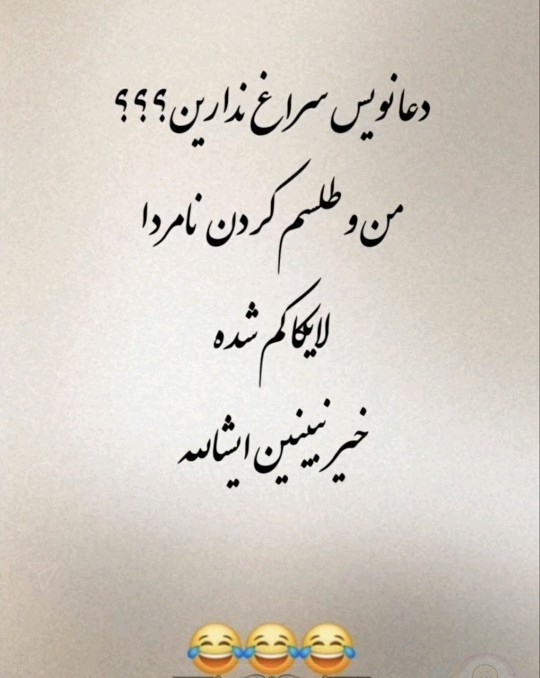 دعانویس سراغ ندارین؟؟؟
من و طلسم کردن نامردا
لایکا کم شده
خیر نبینین ایشالله
😂😂😂